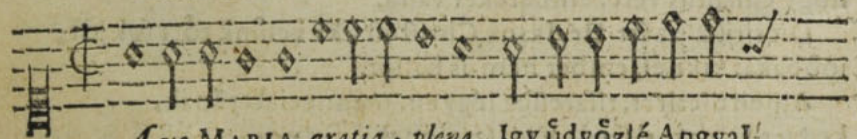 Ave MARIA gratia plena, Igy üdvözlé Angyal